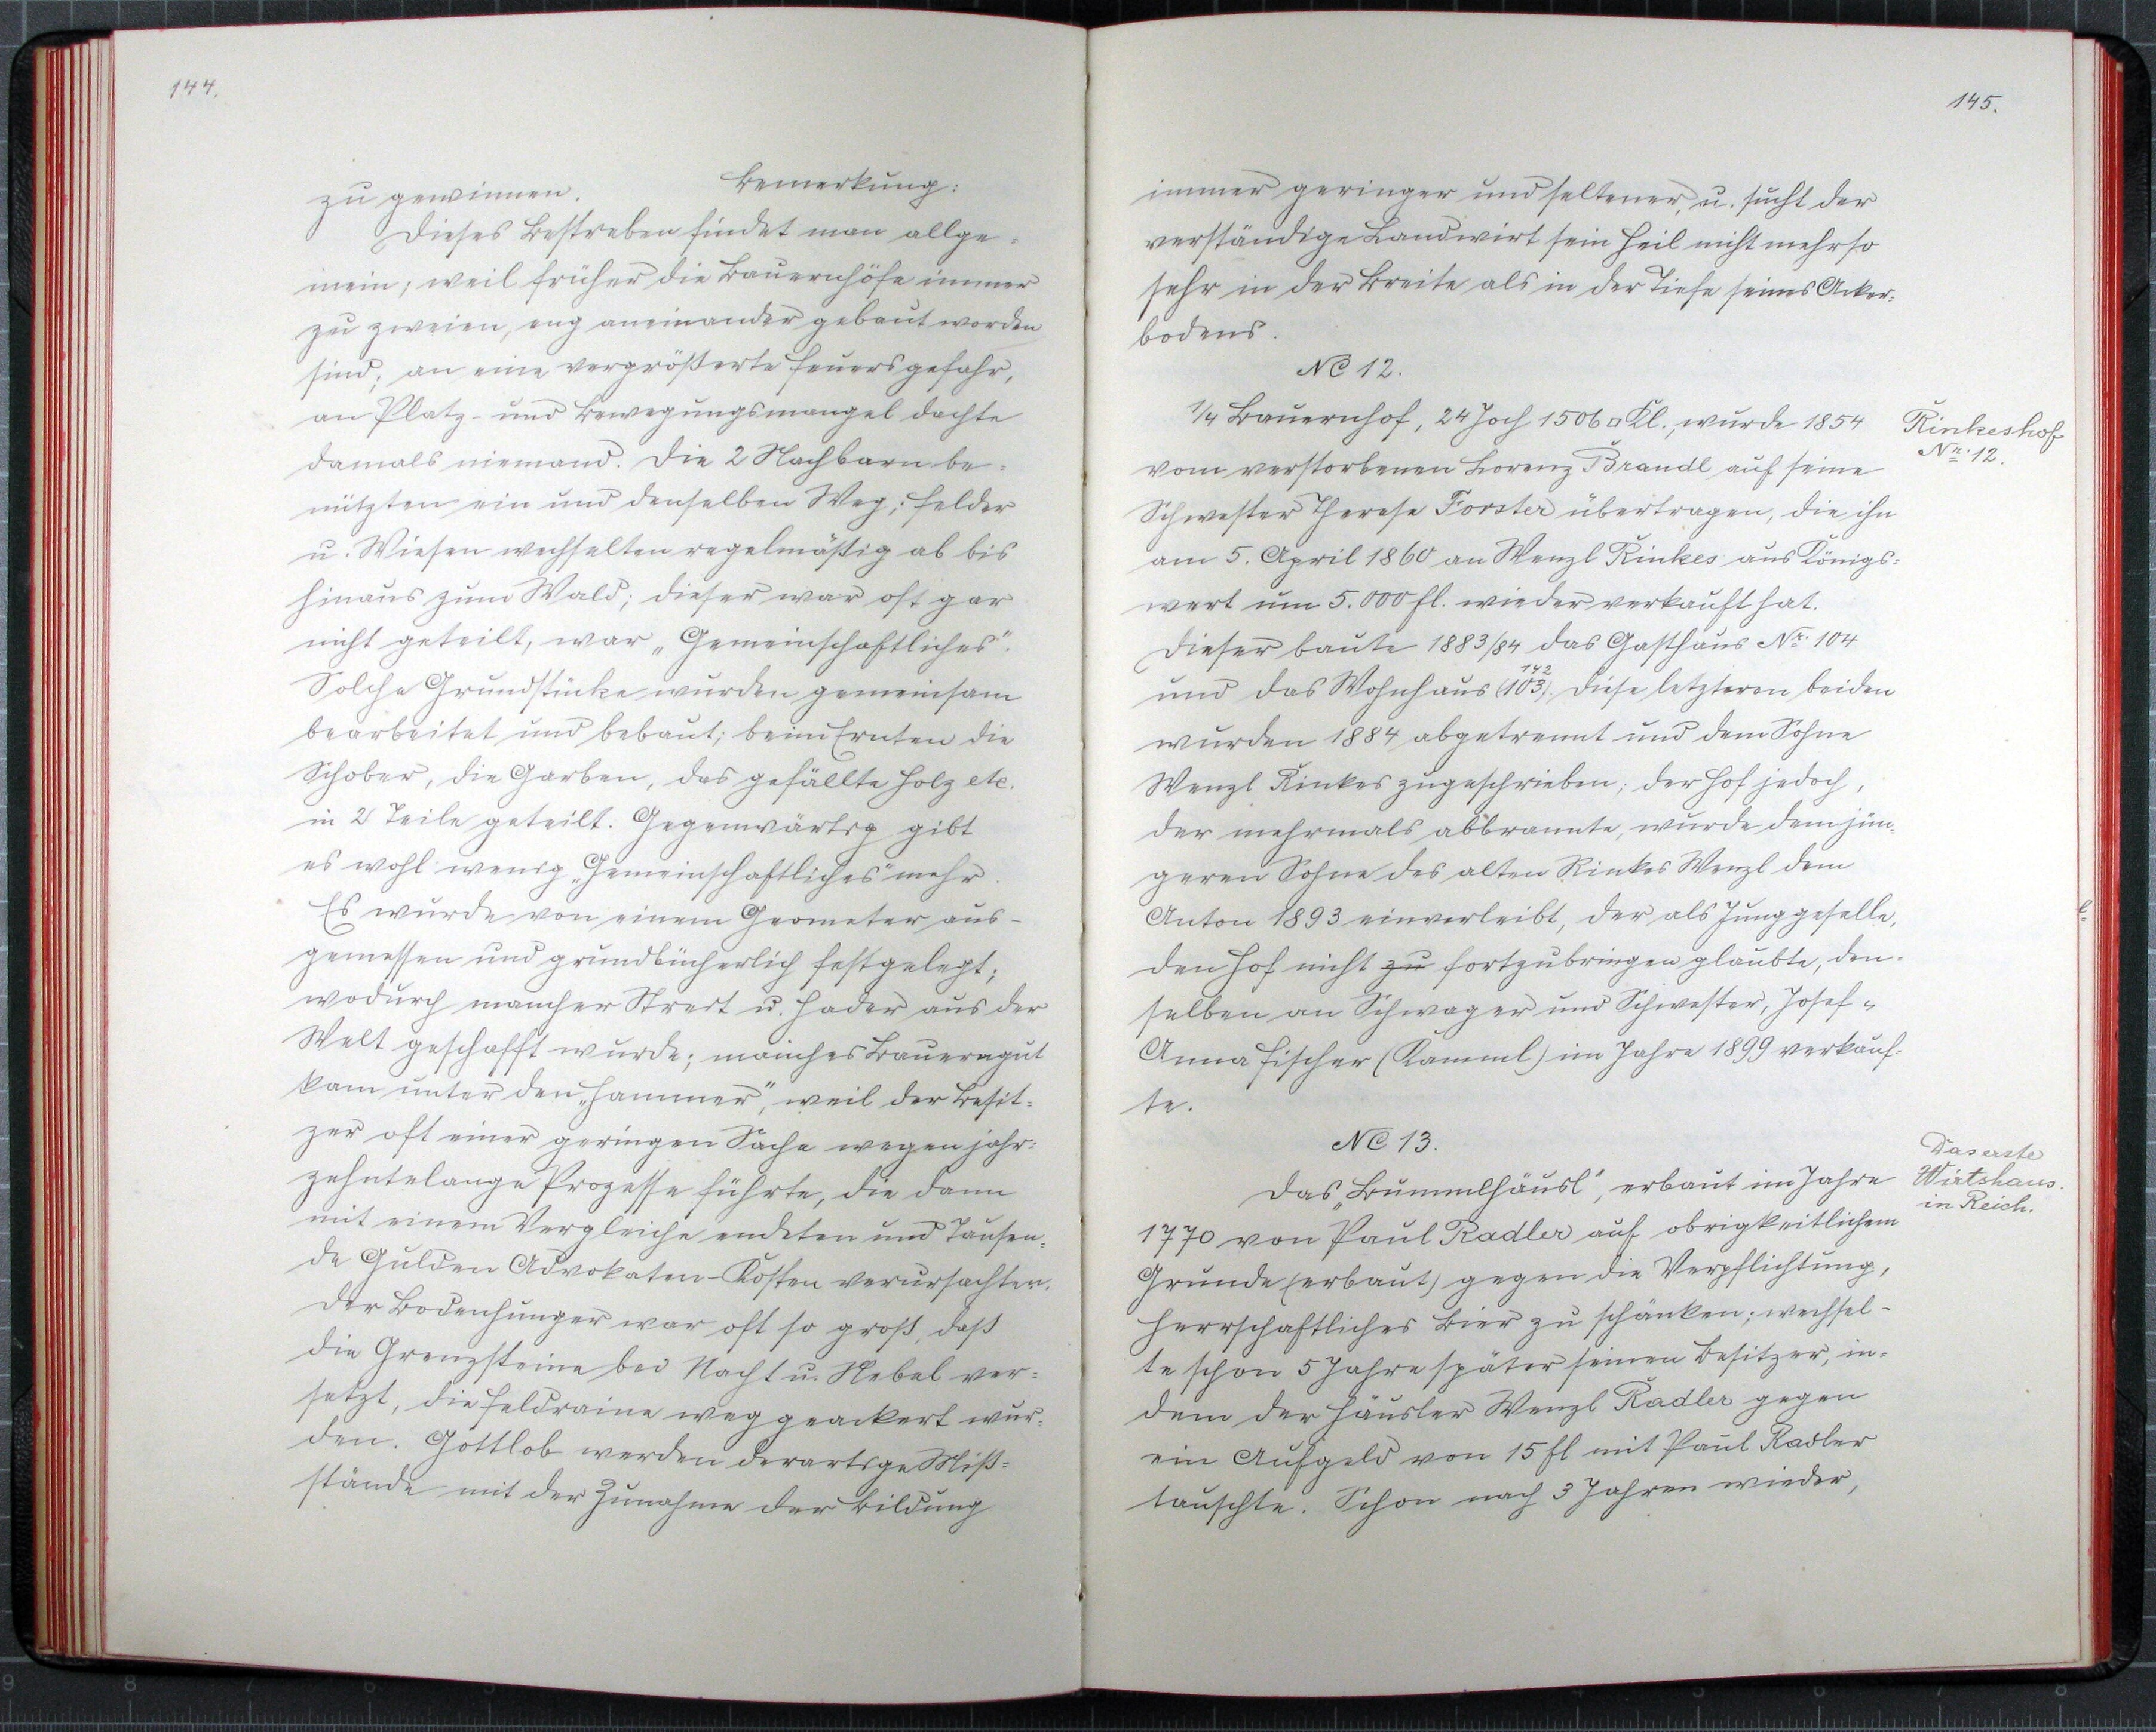 144.
zu gewinnen. Bemerkung:
Dieses Bestreben findet man allge=
mein; weil früher die Bauernhöfe immer
zu zweien, eng aneinander gebaut worden
sind; an eine vergrößerte Feuersgefahr,
an Platz- und Bewegungsmangel dachte
damals niemand. Die 2 Nachbarn be=
nützten ein und denselben Weg; Felder
u. Wiesen wechselten regelmäßig ab bis
hinaus zum Wald; dieser war oft gar
nicht geteilt, war „Gemeinschaftliches".
Solche Grundstücke wurden gemeinsam
bearbeitet und bebaut; beim Ernten die
Schober, die Garben, das gefällte Holz etc.
in 2 Teile geteilt. Gegenwärtig gibt
es wohl wenig „Gemeinschaftliches" mehr.
Es wurde von einem Geometer aus-
gemessen und grundbücherlich festgelegt;
wodurch mancher Streit u. Hader aus der
Welt geschafft wurde; manches Bauerngut
kam unter den „Hammer", weil der Besit=
zer oft einer geringen Sache wegen jahr=
zehntelange Prozesse führte, die dann
mit einem Vergleiche endeten und Tausen=
de Gulden Advokaten-Kosten verursachten.
Der Bodenhunger war oft so groß, daß
die Grenzsteine bei Nacht u. Nebel ver=
setzt, die Feldraine weggeackert wur=
den. Gottlob werden derartige Miß=
stände mit der Zunahme der Bildung
145.
immer geringer und seltener, u. sucht der
verständige Landwirt sein Heil nicht mehr so
sehr in der Breite als in der Tiefe seines Acker=
bodens.
NC 12.
1/4 Bauernhof, 24 Joch 1506 □ Kl., wurde 1854
Rinkeshof
Nr. 12.
vom verstorbenen Lorenz Brandl auf seine
Schwester Therese Forster übertragen, die ihn
am 5. April 1860 an Wenzl Rinkes aus Königs=
wert um 5.000 fl. wieder verkauft hat.
Dieser baute 1883/84 das Gasthaus Nr. 104
142
und das Wohnhaus (103). Diese letzteren beiden
wurden 1884 abgetrennt und dem Sohne
Wenzl Rinkes zugeschrieben; der Hof jedoch,
der mehrmals abbrannte, wurde dem jün=
geren Sohne des alten Rinkes Wenzl dem
Anton 1893 einverleibt, der als Junggeselle,
den Hof nicht zu fortzubringen glaubte, den=
selben an Schwager und Schwester, Josef u
Anna Fischer (Kamml) im Jahre 1899 verkauf=
te.
NC 13.
Das erste
Wirtshaus
in Reich.
Das „Bummlhäusl", erbaut im Jahre
1770 von Paul Radler auf obrigkeitlichem
Grunde (erbaut) gegen die Verpflichtung,
herrschaftliches Bier zu schänken; wechsel-
te schon 5 Jahre später seinen Besitzer, in=
dem der Häusler Wenzl Radler gegen
ein Aufgeld von 15 fl mit Paul Radler
tauschte. Schon nach 3 Jahren wieder,